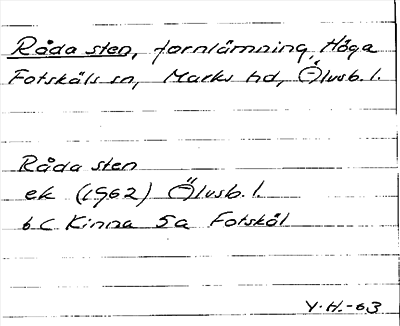 Råda sten, fornlämning, Höga
Fotskäls sn, Marks hd, Älvsb. l.
Råda sten
ek (1962) Älvsb. l.
6C Kinna 5a Fotskäl
Y.H.-63